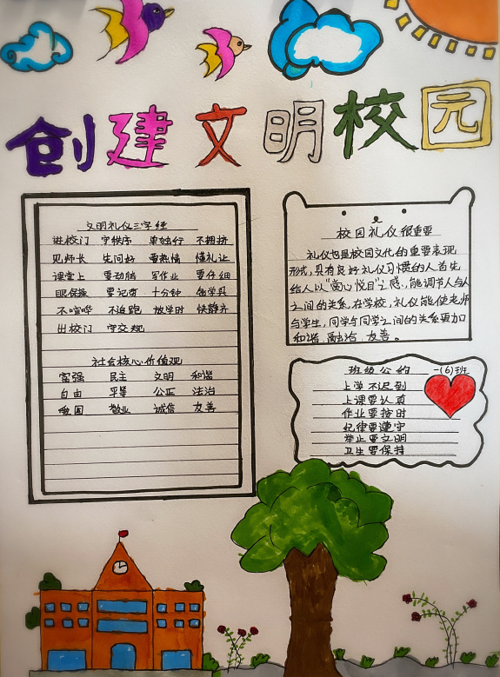 创建文明校园
文明礼仪三字经
进校门 守秩序 单独行 不拥挤
见师长 生问好 要热情 懂礼让
课堂上 要动脑 写作业 要仔细
眼保操 要记劳 十分钟
不喧哗 不追跑 放学时 快静齐
出校门 守交规
社会核心价值观
富强 民主 文明 和谐
自由 平等 公正 法治
敬业 诚信 友善
校园礼仪很重要
礼仪也是校园文化的重要表现
形式,具有良好礼仪习惯的人首先
给人以"赏心悦目"之感,能调节人与人
之间的关系,在学校,礼仪能使老师
与学生,同学与同学之间的关系更加
和谐 融洽 友善。
班级公约 一(6)班
上学不迟到
上课要认真
作业要按时
纪律要遵守
举止要文明
卫生要保持